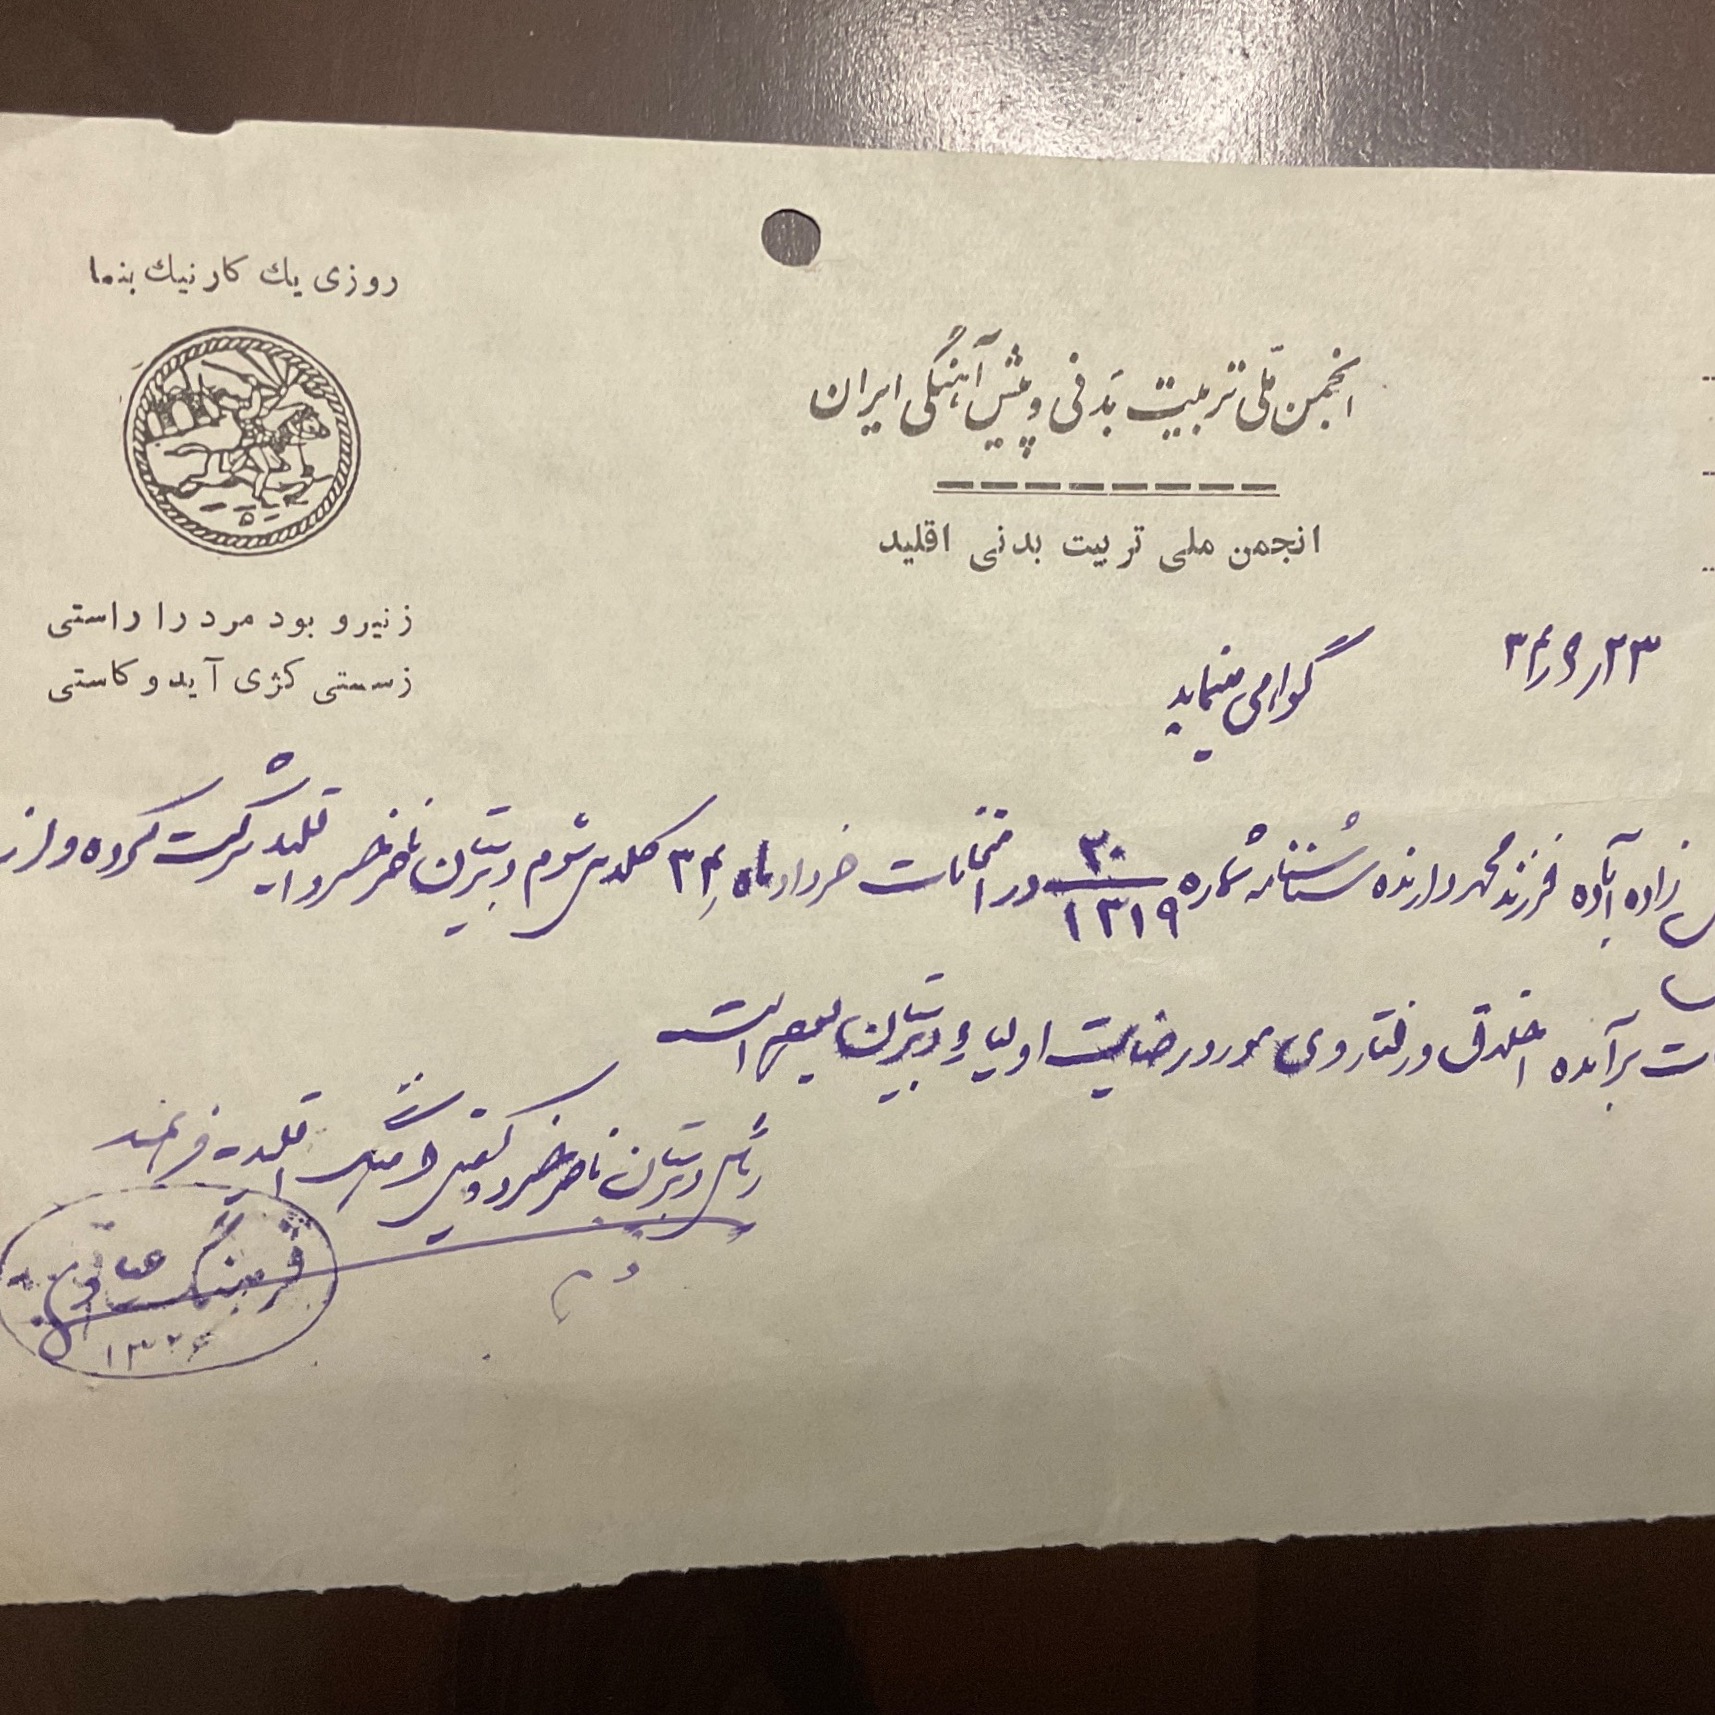 روزی یك كار نیك بنما
انجمن ملّی تربیت بدنی و پیش آهنگی ایران
انجمن ملی تربیت بدنی اقلید
ز نیرو بود مرد را راستی
ز سستی كژی آید و كاستی
۲۳ر۵ر۳۴
گواهی مینماید
زاده آباده فرزند محمد دارنده شناسنامه شماره ۳۰/۱۳۱۹ در امتحانات خرداد ماه ۳۴ كلاس سوم دبیرستان ناصر خسرو اقلید شركت كرده و از
برآمده اخلاق و رفتار وی مورد رضایت اولیاء دبیرستان بوده است
رئیس دبیرستان ناصر خسرو و اقلید
فرهنگ
۱۳۲۶